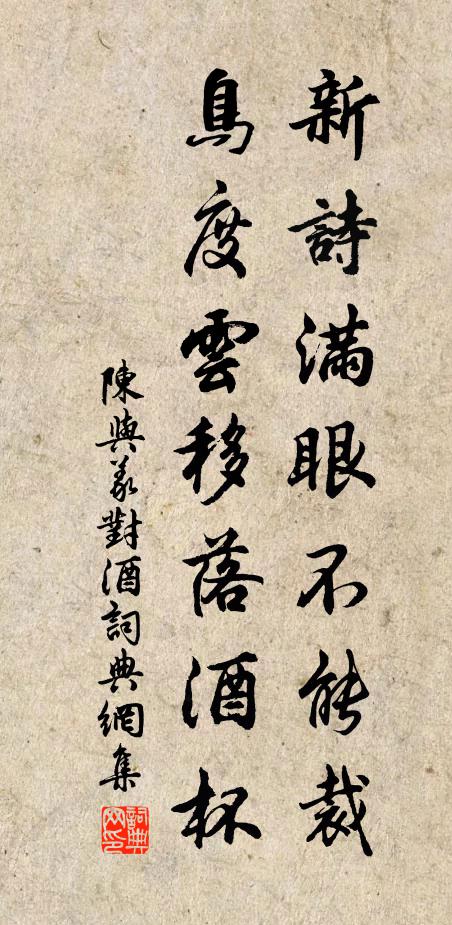 新詩滿眼不能裁
鳥度雲移落酒杯
陳與義對酒詞典網集
詞典网印